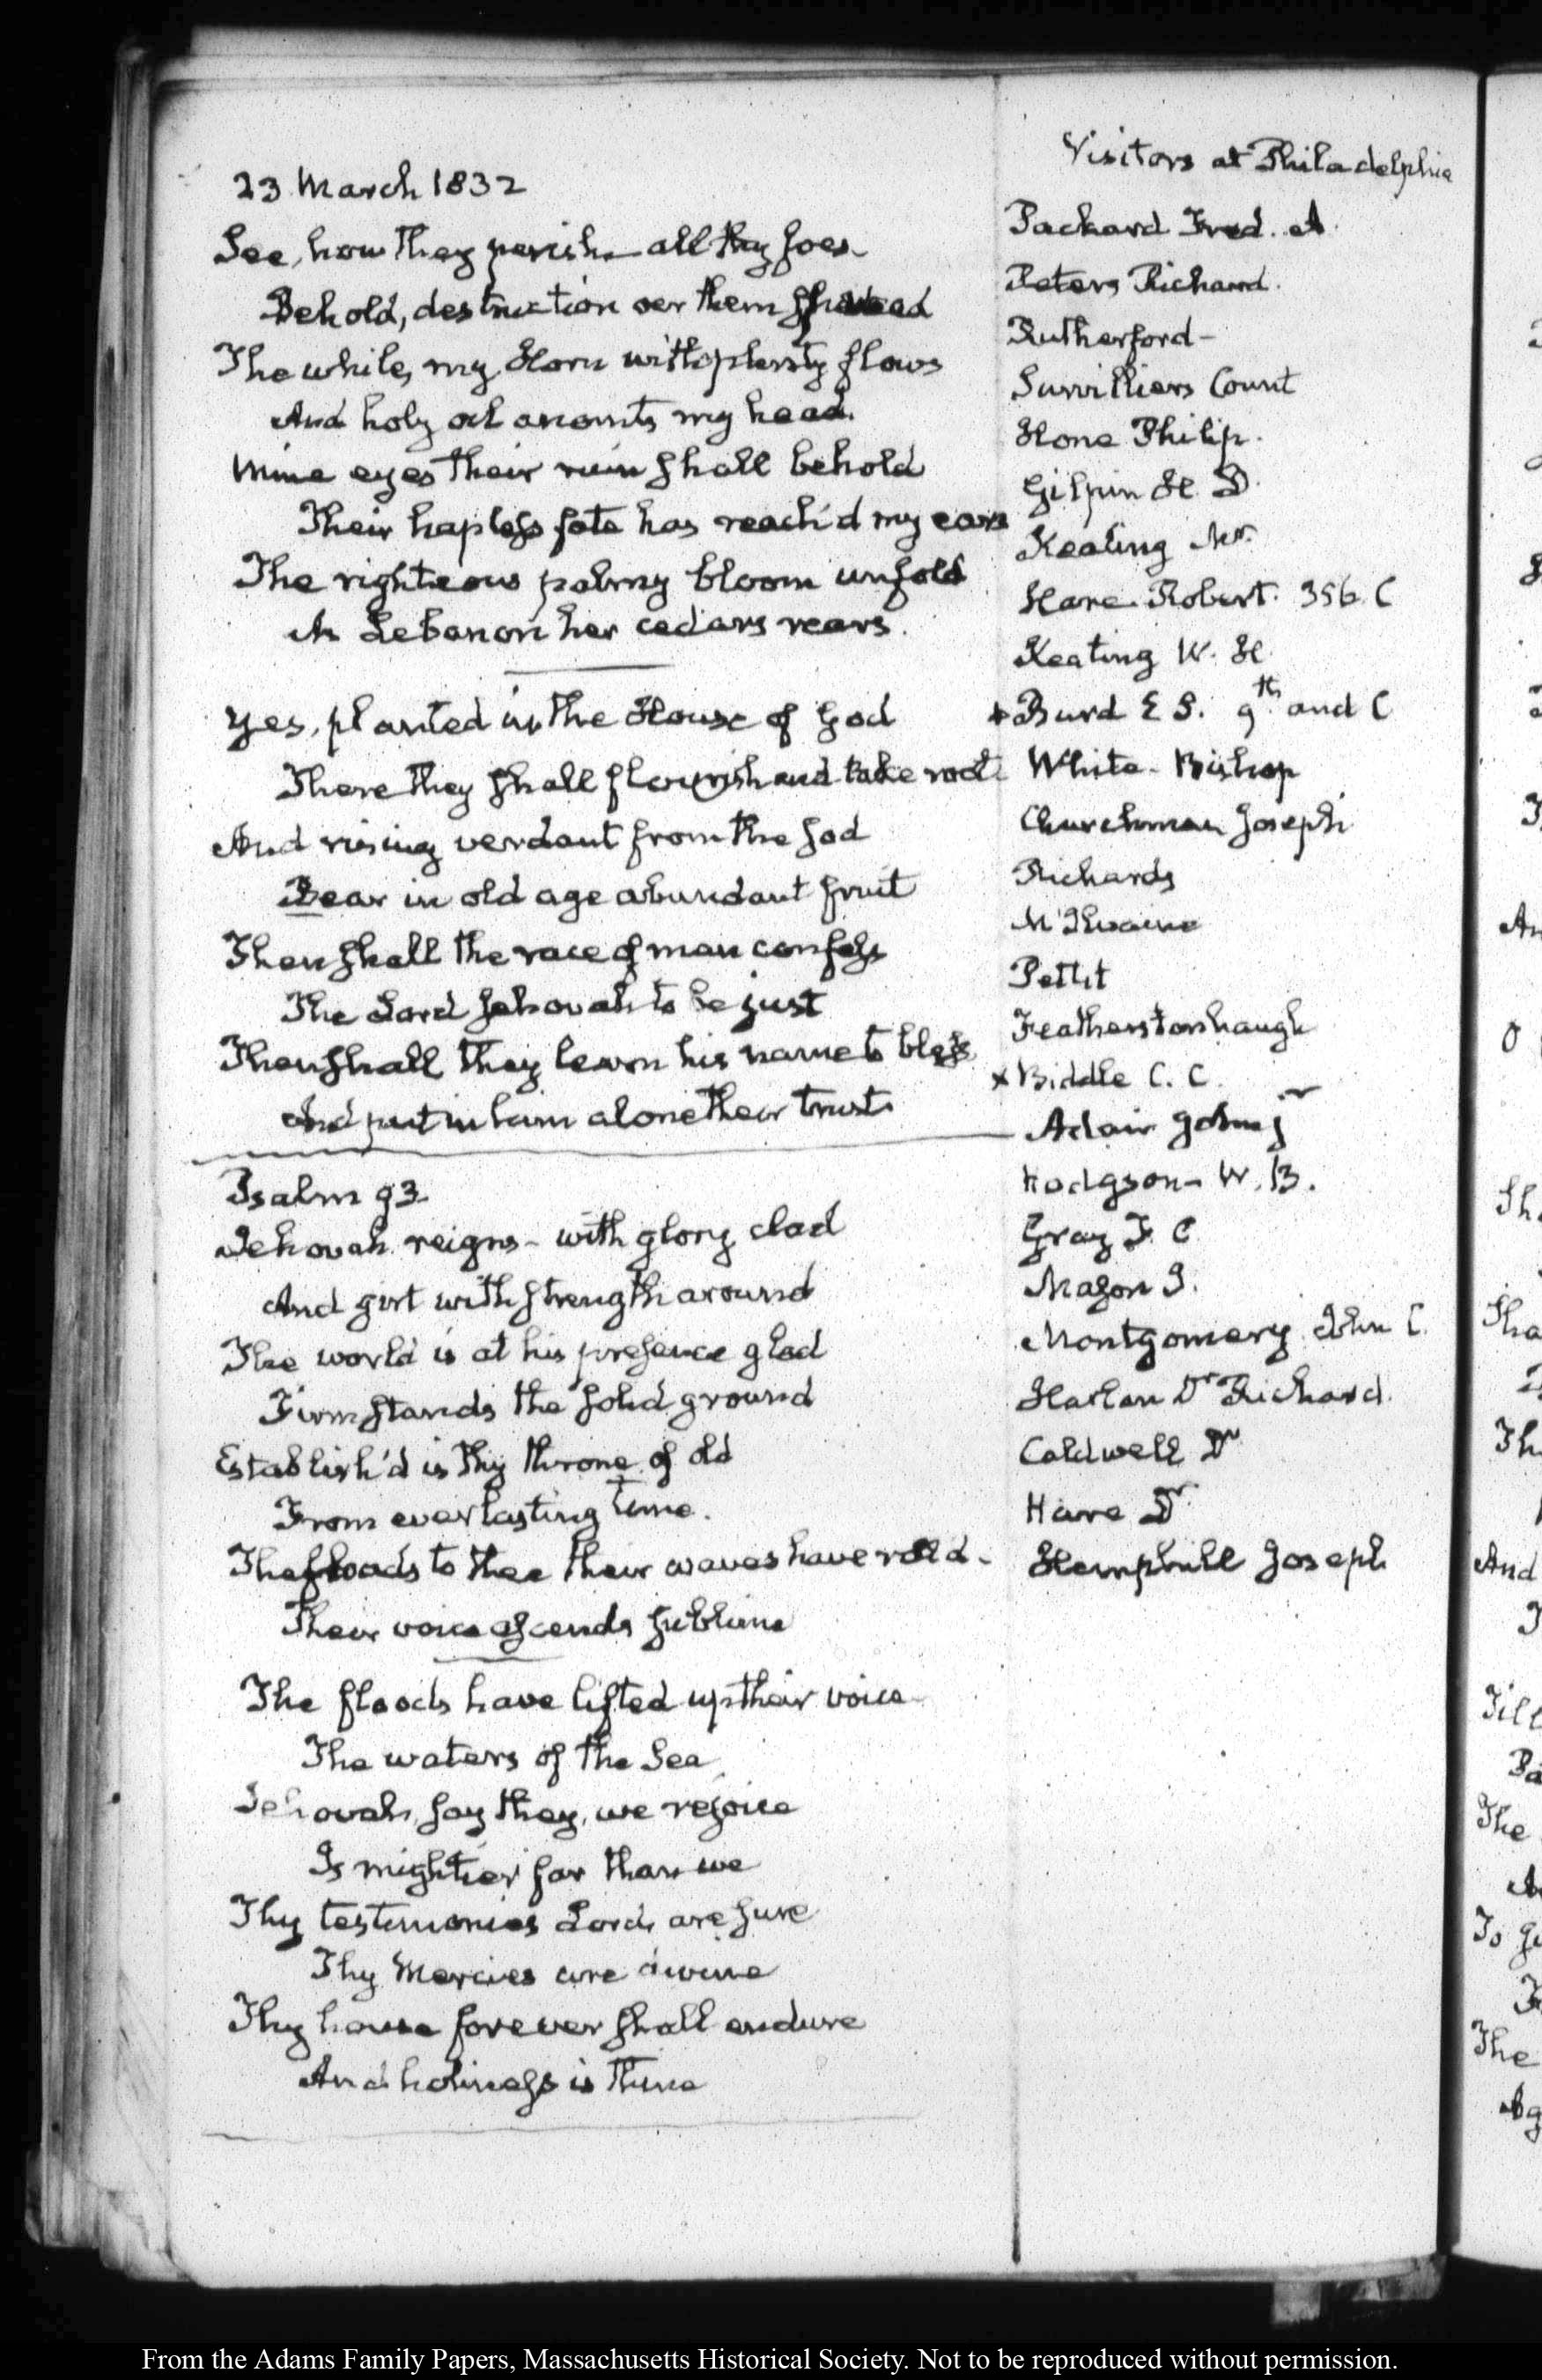 23 March 1832
See, how they perish – all thy foes –
Behold, destruction oer them spread
The while, my Horn with plenty flows
And holy oil anoints my head.
Mine eyes their ruin shall behold
Their hapless fate has reach'd my ears
The righteous palmy bloom unfold
As Lebanon her cedars rears.
Yes, planted in the House of God
There they shall flourish and take root.
And rising verdant from the sod
Bear in old age abundant fruit
Then shall the race of man confess
The Lord Jehovah to be just
Then shall they learn his name to bless
And put in him alone their trust.
Psalm 93.
Jehovah reigns – with glory clad
And girt with strength around
The world is at his presence glad
Firm stands the solid ground
Establish'd is thy throne of old
From everlasting time.
The floods to thee their waves have roll'd –
Their voice ascends sublime
The floods have lifted up their voice
The waters of the Sea
Jehovah, say they, we rejoice
Is mightier far than we
Thy testimonies Lord, are sure
Thy Mercies are divine
Thy house forever shall endure
And holiness is thine
Visitors at Philadelphia
Packard Fred. A.
Peters Richard.
Rutherford –
Survilliers Count
Hone Philip.
Gilpin H. D.
Keating Mr.
Hare Robert. 356. C
Keating W. H.
+ Burd E S. 9th and C
White – Bishop
Churchman Joseph
Richards
McIlvaine
Pettit
Featherstonhaugh
x Biddle C. C.
Adair John jr
Hodgson – W. B.
Gray F. C
Mason J.
Montgomery John C.
Harlan Dr Richard.
Caldwell Dr
Hare Dr
Hemphill Joseph
From the Adams Family Papers, Massachusetts Historical Society. Not to be reproduced without permission.